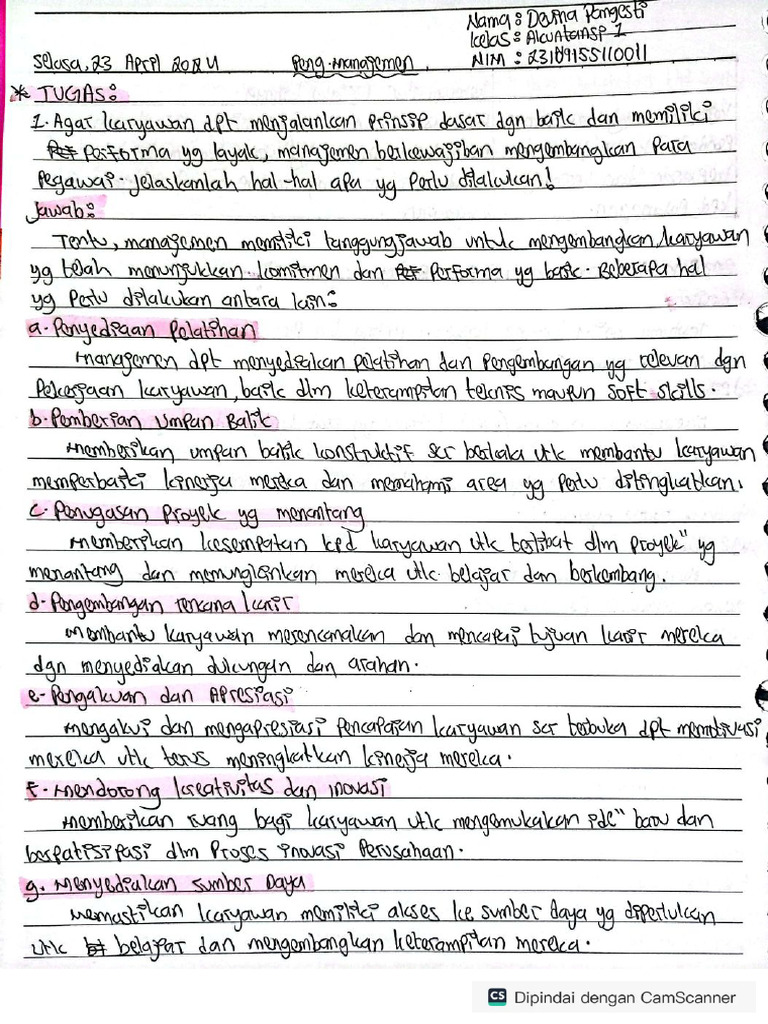 Nama : Devina Pangesti
Kelas : Akuntansi 1
Selasa, 23 April 2024 Peng. Manajemen. NIM : 23189155110011
* TUGAS :
1. Agar karyawan dpt menjalankan prinsip dasar dgn baik dan memiliki
performa yg layak, manajemen berkewajiban mengembangkan para
pegawai. Jelaskanlah hal-hal apa yg perlu dilakukan!
Jawab :
Tentu, manajemen memiliki tanggung jawab untuk mengembangkan karyawan
yg telah menunjukkan komitmen dan performa yg baik. Beberapa hal
yg perlu dilakukan antara lain :
a. Penyediaan Pelatihan
Manajemen dpt menyediakan pelatihan dan pengembangan yg relevan dgn
pekerjaan karyawan, baik dlm keterampilan teknis maupun soft skills.
b. Pemberian Umpan Balik
Memberikan umpan balik konstruktif scr berkala utk membantu karyawan
memperbaiki kinerja mereka dan memahami area yg perlu ditingkatkan.
c. Penugasan Proyek yg menantang
Memberikan kesempatan kpd karyawan utk terlibat dlm proyek" yg
menantang dan memungkinkan mereka utk belajar dan berkembang.
d. Pengembangan rencana karir
Membantu karyawan merencanakan dan mencapai tujuan karir mereka
dgn menyediakan dukungan dan arahan.
e. Pengakuan dan Apresiasi
Mengakui dan mengapresiasi pencapaian karyawan scr terbuka dpt memotivasi
mereka utk terus meningkatkan kinerja mereka.
f. Mendorong kreativitas dan inovasi
Memberikan ruang bagi karyawan utk mengemukakan ide" baru dan
berpatisipasi dlm proses inovasi perusahaan.
g. Menyediakan Sumber Daya
Memastikan karyawan memiliki akses ke sumber daya yg diperlukan
utk belajar dan mengembangkan keterampilan mereka.
CS Dipindai dengan CamScanner